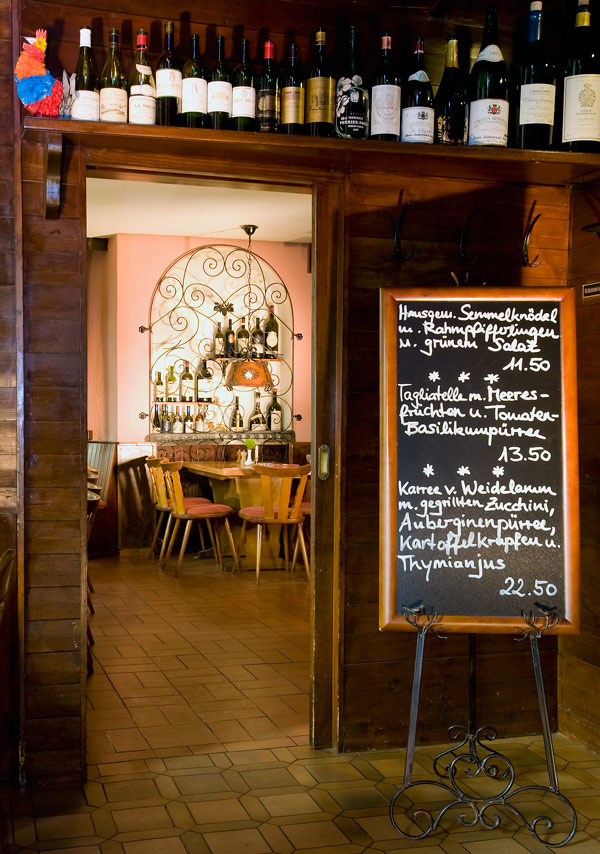 Hausgem. Semmelknödel
m. Rahmpfifferlingen
u. grünem Salat
11.50
Tagliatelle m. Meeres-
früchten u. Tomaten-
Basilikumpürree
13.50
Karree v. Weidelamm
m. gegrillten Zucchini,
Auberginenpürree,
Kartoffelkrapfen u.
Thymianjus
22.50